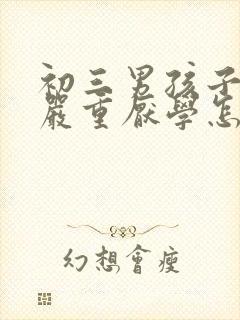 初三男孩子
嚴重厭學怎
幻想會瘦